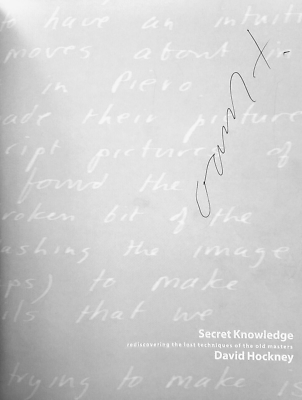 to have an intuiti
moves about in
in Piero
ade their picture
cipt pictures of
found the
roken bit of the
ashing the image
ps) to make
ils that we
Secret Knowledge
rediscovering the lost techniques of the old masters
David Hockney
trying to make is